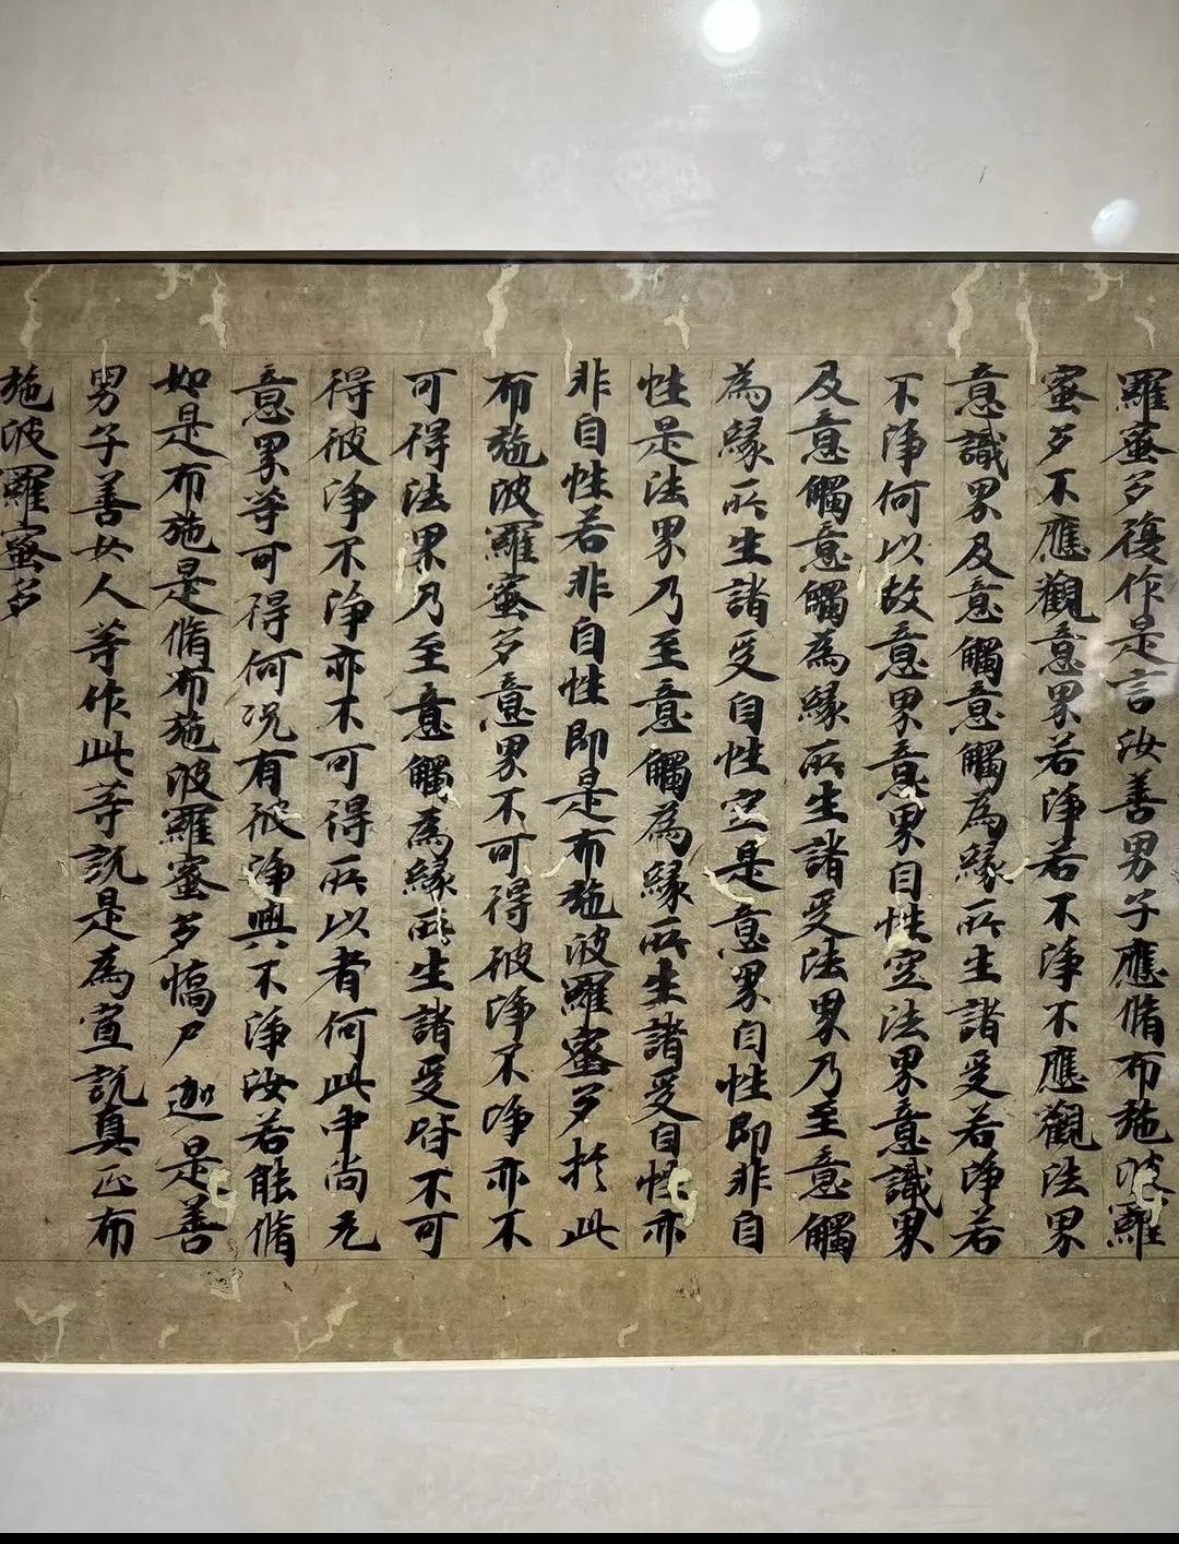 羅蜜多復作是言汝善男子應脩布施波羅
蜜多不應觀意界若淨若不淨不應觀法界
意識界及意觸意觸為緣所生諸受若淨若
不淨何以故意界意界自性空法界意識界
及意觸意觸為緣所生諸受法界乃至意觸
為緣所生諸受自性空是意界自性即非自
性是法界乃至意觸為緣所生諸受自性亦
非自性若非自性即是布施波羅蜜多於此
布施波羅蜜多意界不可得彼淨不淨亦不
可得法界乃至意觸為緣所生諸受皆不可
得彼淨不淨亦不可得所以者何此中尚无
意界等可得何況有彼淨與不淨汝若能脩
如是布施是脩布施波羅蜜多憍尸迦是善
男子善女人等作此等說是為宣說真正布
施波羅蜜多